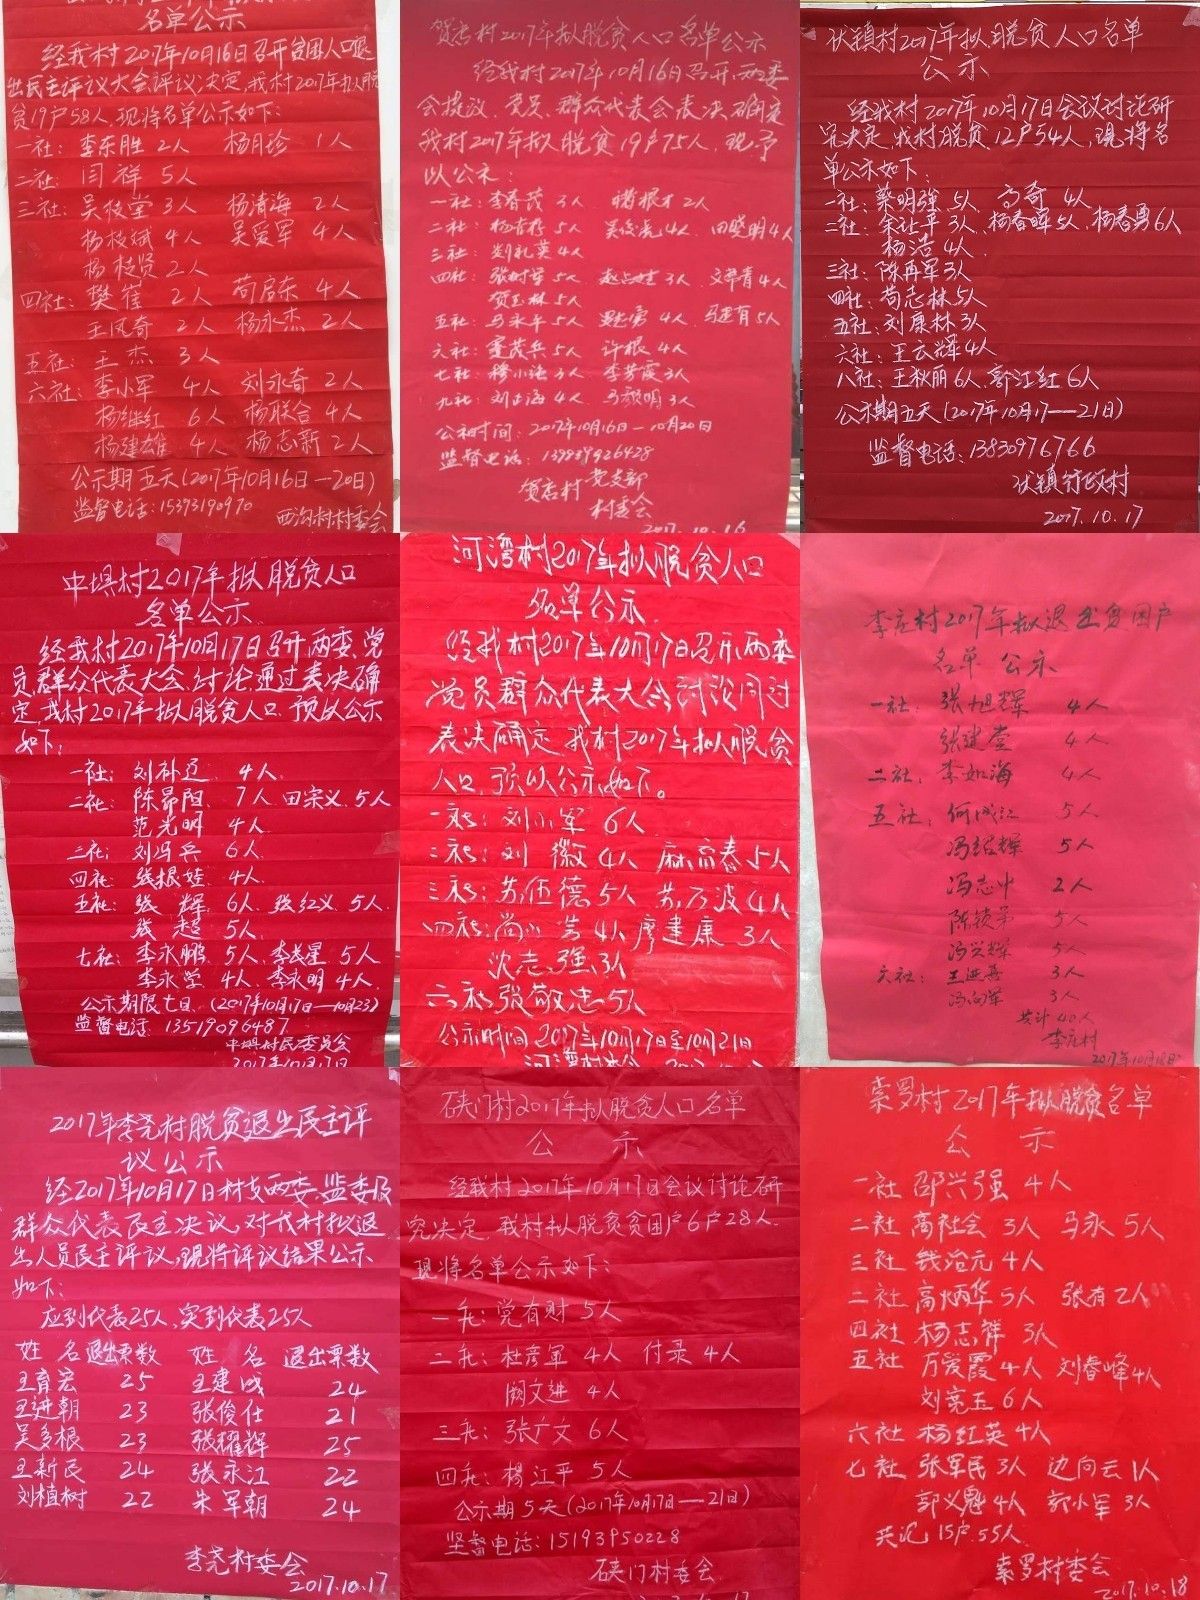 名单公示
经我村2017年10月16日召开贫困人口退
出民主评议大会评议,决定,我村2017年拟脱
贫19户58人,现将名单公示如下:
一社:李东胜 2人 杨月珍 1人
二社:闫祥 5人
三社:吴枝堂 3人 杨清海 2人
杨枝斌 4人 吴爱军 4人
杨枝贤 2人
四社:樊崔 2人 苟启东 4人
王凤奇 2人 杨永杰 2人
五社:王杰 3人
六社:李小军 4人 刘永奇 2人
杨继红 6人 杨联合 4人
杨建雄 4人 杨志新 2人
公示期五天(2017年10月16日—20日)
监督电话:15393190970
西沟村村委会
贺店村2017年拟脱贫人口名单公示
经我村2017年10月16日召开两委
会提议、党员、群众代表会表决确定
我村2017年拟脱贫19户75人,现予
以公示:
一社:李春茂 3人 杨根才 2人
二社:杨吉祥 5人 吴俊虎 4人 田晓明 4人
三社:刘礼英 4人
四社:张时军 5人 赵占娃 3人 文苹青 4人
贺玉林 5人
五社:马永年 5人 4人 马进有 5人
六社:蹇茂兵 5人 许根 4人
七社:穆小海 3人 李芳霞 3人
九社:刘上海 4人 马毅明 3人
公示时间:2017年10月16日—10月20日
监督电话:13989926428
贺店村 党支部
村委会
2017.10.16
伏镇村2017年拟脱贫人口名单
公示
经我村2017年10月17日会议讨论研
究决定,我村脱贫12户54人,现将名
单公示如下:
一社:蔡明强 5人 高奇 4人
二社:朱让平 3人、杨春晖 5人、杨春勇 6人
杨洁 4人
三社:陈再军 3人
四社:苟志林 5人
五社:刘康林 3人
六社:王云辉 4人
八社:王秋丽 6人,郭江红 6人
公示期五天(2017年10月17—21日)
监督电话:13830976766
伏镇行政村
2017.10.17
中坝村2017年拟脱贫人口
名单公示
经我村2017年10月17日召开两委、党
员,群众代表大会,讨论,通过表决确
定,我村2017年拟脱贫人口,预以公示
如下:
一社:刘补过 4人
二社:陈昂阳 7人 田宗义 5人
范光明 4人
三社:刘冯兵 6人
四社:张根娃 4人
五社:张辉 6人 张红义 5人
张超 5人
七社:李永鹏 5人 李戈星 5人
李永堂 4人 李永明 4人
公示期限七日(2017年10月17日—10月23)
监督电话:13519096487
中坝村民委员会
2017年10月17日
河湾村2017年拟脱贫人口
名单公示
经我村2017年10月17日召开两委
党员群众代表大会讨论同讨
表决确定我村2017年拟脱贫
人口,预以公示如下。
一社:刘小军 6人
二社:刘徽 4人 麻高春 5人
三社:苏伍德 5人 苏万波 4人
四社:尚小芳 4人 廖建康 3人
沈志强 3人
六社:张敬忠 5人
公示时间2017年10月17日至10月21日
河湾村委会
李庄村2017年拟退出贫困户
名单公示
一社:张旭辉 4人
张建堂 4人
二社:李如海 4人
五社:何成江 5人
冯绍辉 5人
冯志中 2人
陈锁弟 5人
冯兴辉 5人
六社:王进喜 3人
冯向军 3人
共计40人
李庄村
2017年10月18日
2017年李尧村脱贫退出民主评
议公示
经2017年10月17日村支两委、监委及
群众代表民主决议,对我村拟退
出人员民主评议,现将评议结果公示
如下:
应到代表25人,实到代表25人
姓名 退出票数 姓名 退出票数
王育宏 25 王建成 24
王进朝 23 张俊仕 21
吴多根 23 张耀辉 25
王新民 24 张永江 22
刘植树 22 朱军朝 24
李尧村委会
2017.10.17
硖门村2017年拟脱贫人口名单
公示
经我村2017年10月17日会议讨论研
究决定,我村拟脱贫贫困户6户28人.
现将名单公示如下:
一社:党有财 5人
二社:杜彦军 4人 付录 4人
阙文进 4人
三社:张广文 6人
四社:杨江平 5人
公示期5天(2017年10月17日—21日)
监督电话:15193950228
硖门村委会
索罗村2017年拟脱贫名单
公示
一社 邵兴强 4人
二社 高社会 3人 马永 5人
三社 钱治元 4人
二社 高炳华 5人 张有 2人
四社 杨志祥 3人
五社 万爱霞 4人 刘春峰 4人
刘亮玉 6人
六社 杨红英 4人
七社 张军民 3人 边向云 1人
郭义魁 4人 郭小军 3人
共记15户55人
索罗村委会
2017.10.18